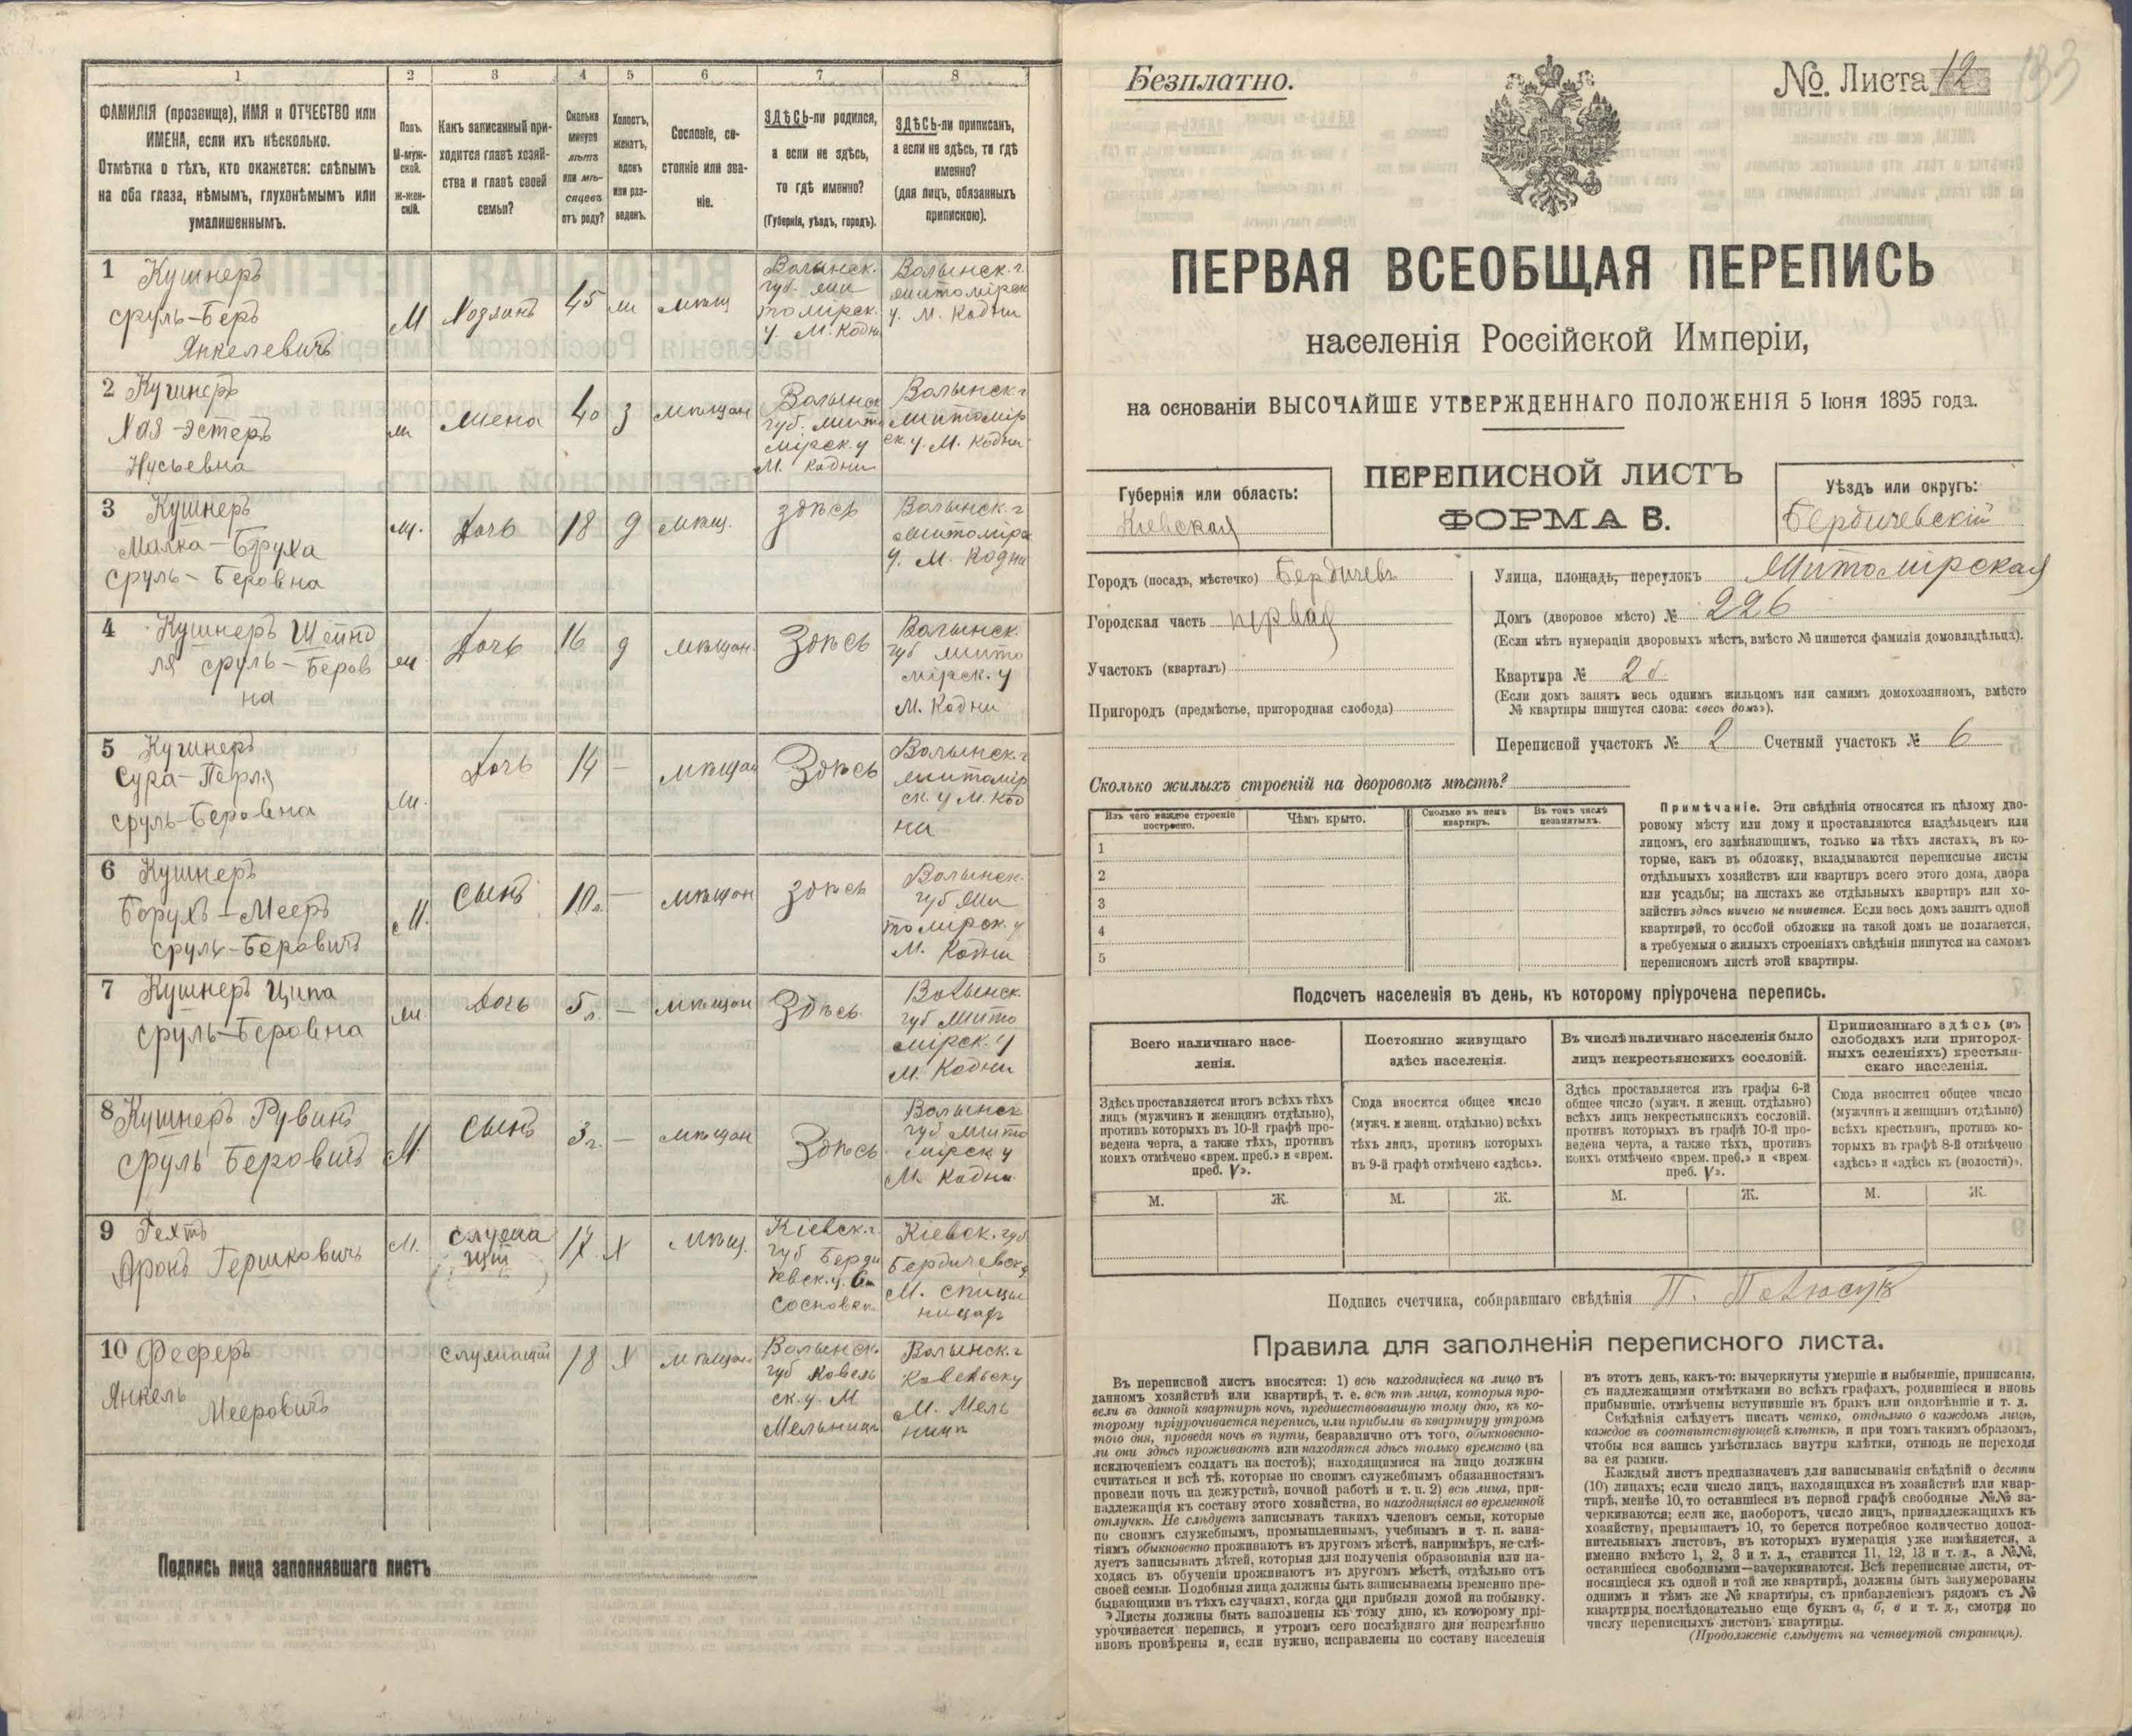 1 2 3 4 5 6 7 8
ФАМИЛІЯ (прозвище), ИМЯ и ОТЧЕСТВО или
ИМЕНА, если ихъ нѣсколько.
Отмѣтка о тѣхъ, кто окажется: слѣпымъ
на оба глаза, нѣмымъ, глухонѣмымъ или
умалишеннымъ.
Полъ.
М-муж-
ской.
Ж-жен-
скій.
Какъ записанный при-
ходится главѣ хозяй-
ства и главѣ своей
семьи?
Сколько
минуло
лѣтъ
или мѣ-
сяцевъ
отъ роду?
Холостъ,
женатъ,
вдовъ
или раз-
веденъ.
Сословіе, со-
стояніе или зва-
ніе.
ЗДѢСЬ-ли родился,
а если не здѣсь,
то гдѣ именно?
(Губернія, уѣздъ, городъ).
ЗДѢСЬ-ли приписанъ,
а если не здѣсь, то гдѣ
именно?
(для лицъ, обязанныхъ
припискою).
1 Кушнеръ
Сруль-Беръ
Янкелевичъ
М
Хозяинъ
45
ж
мѣщ
Волынск.
губ. Жи
томірск.
у. М. Кодн
Волынск. г.
Житомірск
у. М. Кодни
2 Кушнеръ
Хая-Эстеръ
Нусьевна
ж
жена
40
з
мѣщан
Волынск
губ. Жито
мірск. у
М. Кодни
Волынск г
Житомір
ск. у. М. Кодни
3 Кушнеръ
Малка-Бруха
Сруль-Беровна
ж.
дочь
18
д
мѣщ.
здѣсь
Волынск. г
Житомірск
у. М. Кодни
4 Кушнеръ Шейнд
ля Сруль-Беров
на
ж.
дочь
16
д
мѣщан.
Здѣсь
Волынск.
губ Жито
мірск. у
М. Кодни
5 Кушнеръ
Сура-Перля
Сруль-Беровна
ж.
дочь
14
—
мѣщан
Здѣсь
Волынск. г
Житомір
ск. у М. Код
ни
6 Кушнеръ
Борухъ-Мееръ
Сруль-Беровичъ
М.
сынъ
10 л.
—
мѣщан
здѣсь
Волынск.
губ Жи
томірск. у
М. Кодни
7 Кушнеръ Ципа
Сруль-Беровна
ж.
дочь
5 л.
—
мѣщан
Здѣсь.
Волынск.
губ Жито
мірск. у
М. Кодни
8 Кушнеръ Рувинъ
Сруль Беровичъ
М.
сынъ
3 г.
—
мѣщан
Здѣсь
Волынск
губ Жито
мірск у
М. Кодни
9 Гехтъ
Аронъ Гершковичъ
М.
служа
щій
17
х
мѣщ.
Кіевск. г.
губ Берди
чевск. у.
Сосновк
Кіевск. губ
Бердичевск у
М.
10 Феферъ
Янкель
Мееровичъ
служащій
18
х
мѣщан
Волынск.
губ Ковель
ск. у. М
Мельници
Волынск. г
Ковельску
М. Мель
ници
Подпись лица заполнявшаго листъ
Безплатно.
№. Листа 12
133
ПЕРВАЯ ВСЕОБЩАЯ ПЕРЕПИСЬ
населенія Россійской Имперіи,
на основаніи ВЫСОЧАЙШЕ УТВЕРЖДЕННАГО ПОЛОЖЕНІЯ 5 Іюня 1895 года.
ПЕРЕПИСНОЙ ЛИСТЪ
ФОРМА В.
Губернія или область:
Кіевская
Уѣздъ или округъ:
Бердичевскій
Городъ (посадъ, мѣстечко) Бердичевъ
Городская часть первая
Участокъ (кварталъ)
Пригородъ (предмѣстье, пригородная слобода)
Улица, площадь, переулокъ Житомірская
Домъ (дворовое мѣсто) № 226
(Если нѣтъ нумераціи дворовыхъ мѣстъ, вмѣсто № пишется фамилія домовладѣльца).
Квартира № 2б
(Если домъ занятъ весь однимъ жильцомъ или самимъ домохозяиномъ, вмѣсто
№ квартиры пишутся слова: «весь домъ»).
Переписной участокъ № 2 Счетный участокъ № 6
Сколько жилыхъ строеній на дворовомъ мѣстѣ?
Изъ чего каждое строеніе
построено.
Чѣмъ крыто.
Сколько въ немъ
квартиръ.
Въ томъ числѣ
незанятыхъ.
1
2
3
4
5
Примѣчаніе. Эти свѣдѣнія относятся къ цѣлому дво-
ровому мѣсту или дому и проставляются владѣльцемъ или
лицомъ, его замѣняющимъ, только на тѣхъ листахъ, въ ко-
торые, какъ въ обложку, вкладываются переписные листы
отдѣльныхъ хозяйствъ или квартиръ всего этого дома, двора
или усадьбы; на листахъ же отдѣльныхъ квартиръ или хо-
зяйствъ здѣсь ничего не пишется. Если весь домъ занятъ одной
квартирой, то особой обложки на такой домъ не полагается,
а требуемыя о жилыхъ строеніяхъ свѣдѣнія пишутся на самомъ
переписномъ листѣ этой квартиры.
Подсчетъ населенія въ день, къ которому пріурочена перепись.
Всего наличнаго насе-
ленія.
Постоянно живущаго
здѣсь населенія.
Въ числѣ наличнаго населенія было
лицъ некрестьянскихъ сословій.
Приписаннаго здѣсь (въ
слободахъ или пригород-
ныхъ селеніяхъ) крестьян-
скаго населенія.
Здѣсь проставляется итогъ всѣхъ тѣхъ
лицъ (мужчинъ и женщинъ отдѣльно),
противъ которыхъ въ 10-й графѣ про-
ведена черта, а также тѣхъ, противъ
коихъ отмѣчено «врем. преб.» и «врем.
преб. V».
Сюда вносится общее число
(мужч. и женщ. отдѣльно) всѣхъ
тѣхъ лицъ, противъ которыхъ
въ 9-й графѣ отмѣчено «здѣсь».
Здѣсь проставляется изъ графы 6-й
общее число (мужч. и женщ. отдѣльно)
всѣхъ лицъ некрестьянскихъ сословій.
противъ которыхъ въ графѣ 10-й про-
ведена черта, а также тѣхъ, противъ
коихъ отмѣчено «врем. преб.» и «врем.
преб. V».
Сюда вносится общее число
(мужчинъ и женщинъ отдѣльно)
всѣхъ крестьянъ, противъ ко-
торыхъ въ графѣ 8-й отмѣчено
«здѣсь» и «здѣсь къ (волости)».
М. Ж. М. Ж. М. Ж. М. Ж.
Подпись счетчика, собиравшаго свѣдѣнія П.
Правила для заполненія переписного листа.
Въ переписной листъ вносятся: 1) всѣ находящіеся на лицо въ
данномъ хозяйствѣ или квартирѣ, т. е. всѣ тѣ лица, которыя про-
вели въ данной квартирѣ ночь, предшествовавшую тому дню, къ ко-
торому пріурочивается перепись, или прибыли въ квартиру утромъ
того дня, проведя ночь въ пути, безразлично отъ того, обыкновенно-
ли они здѣсь проживаютъ или находятся здѣсь только временно (за
исключеніемъ солдатъ на постоѣ); находящимися на лицо должны
считаться и всѣ тѣ, которые по своимъ служебнымъ обязанностямъ
провели ночь на дежурствѣ, ночной работѣ и т. п. 2) всѣ лица, при-
надлежащія къ составу этого хозяйства, но находящіяся во временной
отлучкѣ. Не слѣдуетъ записывать такихъ членовъ семьи, которые
по своимъ служебнымъ, промышленнымъ, учебнымъ и т. п. заня-
тіямъ обыкновенно проживаютъ въ другомъ мѣстѣ, напримѣръ, не слѣ-
дуетъ записывать дѣтей, которыя для полученія образованія или на-
ходясь въ обученіи проживаютъ въ другомъ мѣстѣ, отдѣльно отъ
своей семьи. Подобныя лица должны быть записываемы временно пре-
бывающими въ тѣхъ случаяхъ, когда они прибыли домой на побывку.
Листы должны быть заполнены къ тому дню, къ которому прі-
урочивается перепись, и утромъ сего послѣдняго дня непремѣнно
вновь провѣрены и, если нужно, исправлены по составу населенія
въ этотъ день, какъ-то: вычеркнуты умершіе и выбывшіе, приписаны,
съ надлежащими отмѣтками во всѣхъ графахъ, родившіеся и вновь
прибывшіе, отмѣчены вступившіе въ бракъ или овдовѣвшіе и т. д.
Свѣдѣнія слѣдуетъ писать четко, отдѣльно о каждомъ лицѣ,
каждое въ соотвѣтствующей клѣткѣ, и при томъ такимъ образомъ,
чтобы вся запись умѣстилась внутри клѣтки, отнюдь не переходя
за ея рамки.
Каждый листъ предназначенъ для записыванія свѣдѣній о десяти
(10) лицахъ; если число лицъ, находящихся въ хозяйствѣ или квар-
тирѣ, менѣе 10, то оставшіеся въ первой графѣ свободные №№ за-
черкиваются; если же, наоборотъ, число лицъ, принадлежащихъ къ
хозяйству, превышаетъ 10, то берется потребное количество допол-
нительныхъ листовъ, въ которыхъ нумерація уже измѣняется, а
именно вмѣсто 1, 2, 3 и т. д., ставится 11, 12, 13 и т. д., а №№,
оставшіеся свободными—зачеркиваются. Всѣ переписные листы, от-
носящіеся къ одной и той же квартирѣ, должны быть занумерованы
однимъ и тѣмъ же № квартиры, съ прибавленіемъ рядомъ съ №
квартиры последовательно еще буквъ а, б, в и т. д., смотря по
числу переписныхъ листовъ квартиры.
(Продолженіе слѣдуетъ на четвертой страницѣ).